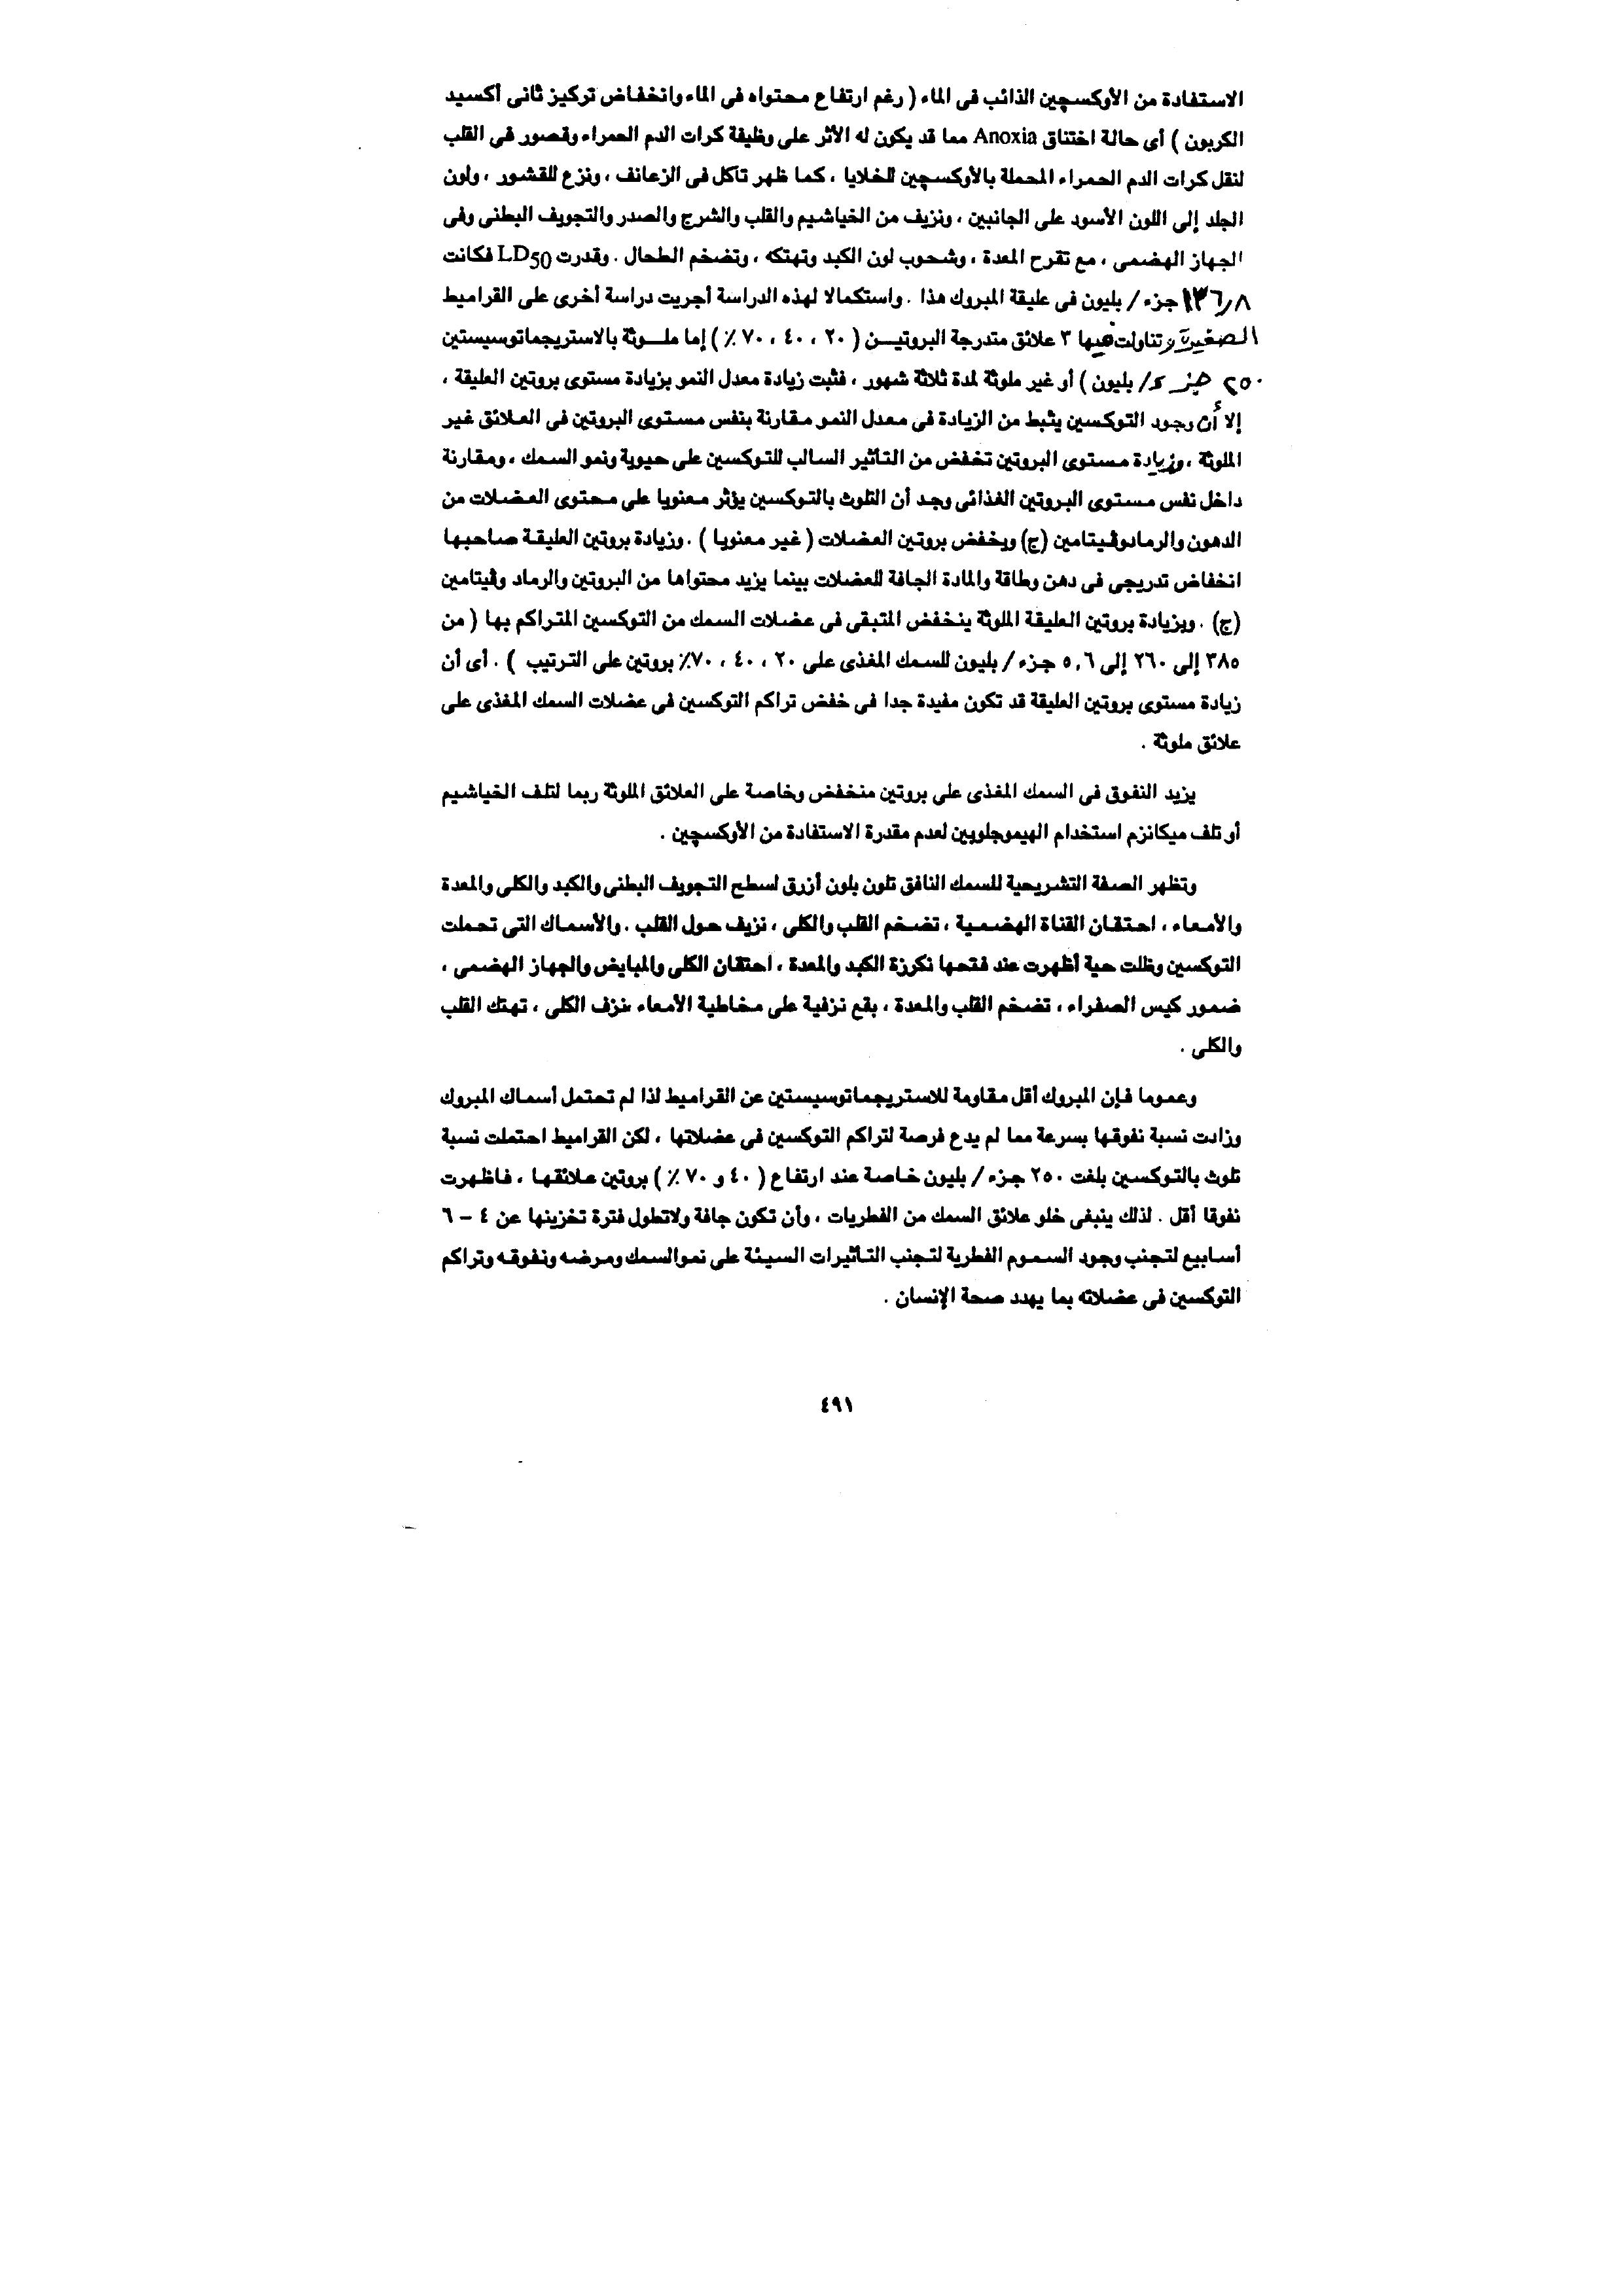 الاستفادة من الأوكسچين الذائب فى الماء ( رغم ارتفاع محتواه فى الماء وانخفاض تركيز ثانى أكسيد
الكربون ) أى حالة اختناق Anoxia مما قد يكون له الأثر على وظيفة كرات الدم الحمراء وقصور فى القلب
لنقل كرات الدم الحمراء المحملة بالأوكسچين للخلايا ، كما ظهر تآكل فى الزعانف ، ونزع للقشور ، ولون
الجلد إلى اللون الأسود على الجانبين ، ونزيف من الخياشيم والقلب والشرج والصدر والتجويف البطنى وفى
الجهاز الهضمى ، مع تقرح المعدة ، وشحوب لون الكبد وتهتكه ، وتضخم الطحال . وقدرت LD50 فكانت
١٣٦٫٨ جزء / بليون فى عليقة المبروك هذا . واستكمالا لهذه الدراسة أجريت دراسة أخرى على القراميط
الصغيرة وتناولت فيها ٣ علائق متدرجة البروتيــن ( ٢٠ ، ٤٠ ، ٧٠ ٪ ) إما ملــوثة بالاستريجماتوسيستين
٢٥٠ جزء / بليون ) أو غير ملوثة لمدة ثلاثة شهور ، فثبت زيادة معدل النمو بزيادة مستوى بروتين العليقة ،
إلا أن وجود التوكسين يثبط من الزيادة فى معدل النمو مقارنة بنفس مستوى البروتين فى العلائق غير
الملوثة ، وزيادة مستوى البروتين تخفض من التأثير السالب للتوكسين على حيوية ونمو السمك ، ومقارنة
داخل نفس مستوى البروتين الغذائى وجد أن التلوث بالتوكسين يؤثر معنويا على محتوى العضلات من
الدهون والرمادوڤيتامين (ج) ويخفض بروتين العضلات ( غير معنويا ) . وزيادة بروتين العليقة صاحبها
انخفاض تدريجى فى دهن وطاقة والمادة الجافة للعضلات بينما يزيد محتواها من البروتين والرماد وڤيتامين
(ج) . وبزيادة بروتين العليقة الملوثة ينخفض المتبقى فى عضلات السمك من التوكسين المتراكم بها ( من
٣٨٥ إلى ٢٦٠ إلى ٥,٦ جزء / بليون للسمك المغذى على ٢٠ ، ٤٠ ، ٧٠٪ بروتين على الترتيب ) . أى أن
زيادة مستوى بروتين العليقة قد تكون مفيدة جدا فى خفض تراكم التوكسين فى عضلات السمك المغذى على
علائق ملوثة .
يزيد النفوق فى السمك المغذى على بروتين منخفض وخاصة على العلائق الملوثة ربما لتلف الخياشيم
أو تلف ميكانزم استخدام الهيموجلوبين لعدم مقدرة الاستفادة من الأوكسچين .
وتظهر الصفة التشريحية للسمك النافق تلون بلون أزرق لسطح التجويف البطنى والكبد والكلى والمعدة
والأمعاء ، احتقان القناة الهضمية ، تضخم القلب والكلى ، نزيف حول القلب . والأسماك التى تحملت
التوكسين وظلت حية أظهرت عند فتحها نكرزة الكبد والمعدة ، احتقان الكلى والمبايض والجهاز الهضمى ،
ضمور كيس الصفراء ، تضخم القلب والمعدة ، بقع نزفية على مخاطية الأمعاء ،نزف الكلى ، تهتك القلب
والكلى .
وعموما فإن المبروك أقل مقاومة للاستريجماتوسيستين عن القراميط لذا لم تحتمل أسماك المبروك
وزادت نسبة نفوقها بسرعة مما لم يدع فرصة لتراكم التوكسين فى عضلاتها ، لكن القراميط احتملت نسبة
تلوث بالتوكسين بلغت ٢٥٠ جزء / بليون خاصة عند ارتفاع ( ٤٠ و ٧٠ ٪ ) بروتين علائقها ، فاظهرت
نفوقا أقل . لذلك ينبغى خلو علائق السمك من الفطريات ، وأن تكون جافة ولاتطول فترة تخزينها عن ٤ – ٦
أسابيع لتجنب وجود السموم الفطرية لتجنب التأثيرات السيئة على نموالسمك ومرضه ونفوقه وتراكم
التوكسين فى عضلاته بما يهدد صحة الإنسان .
٤٩١